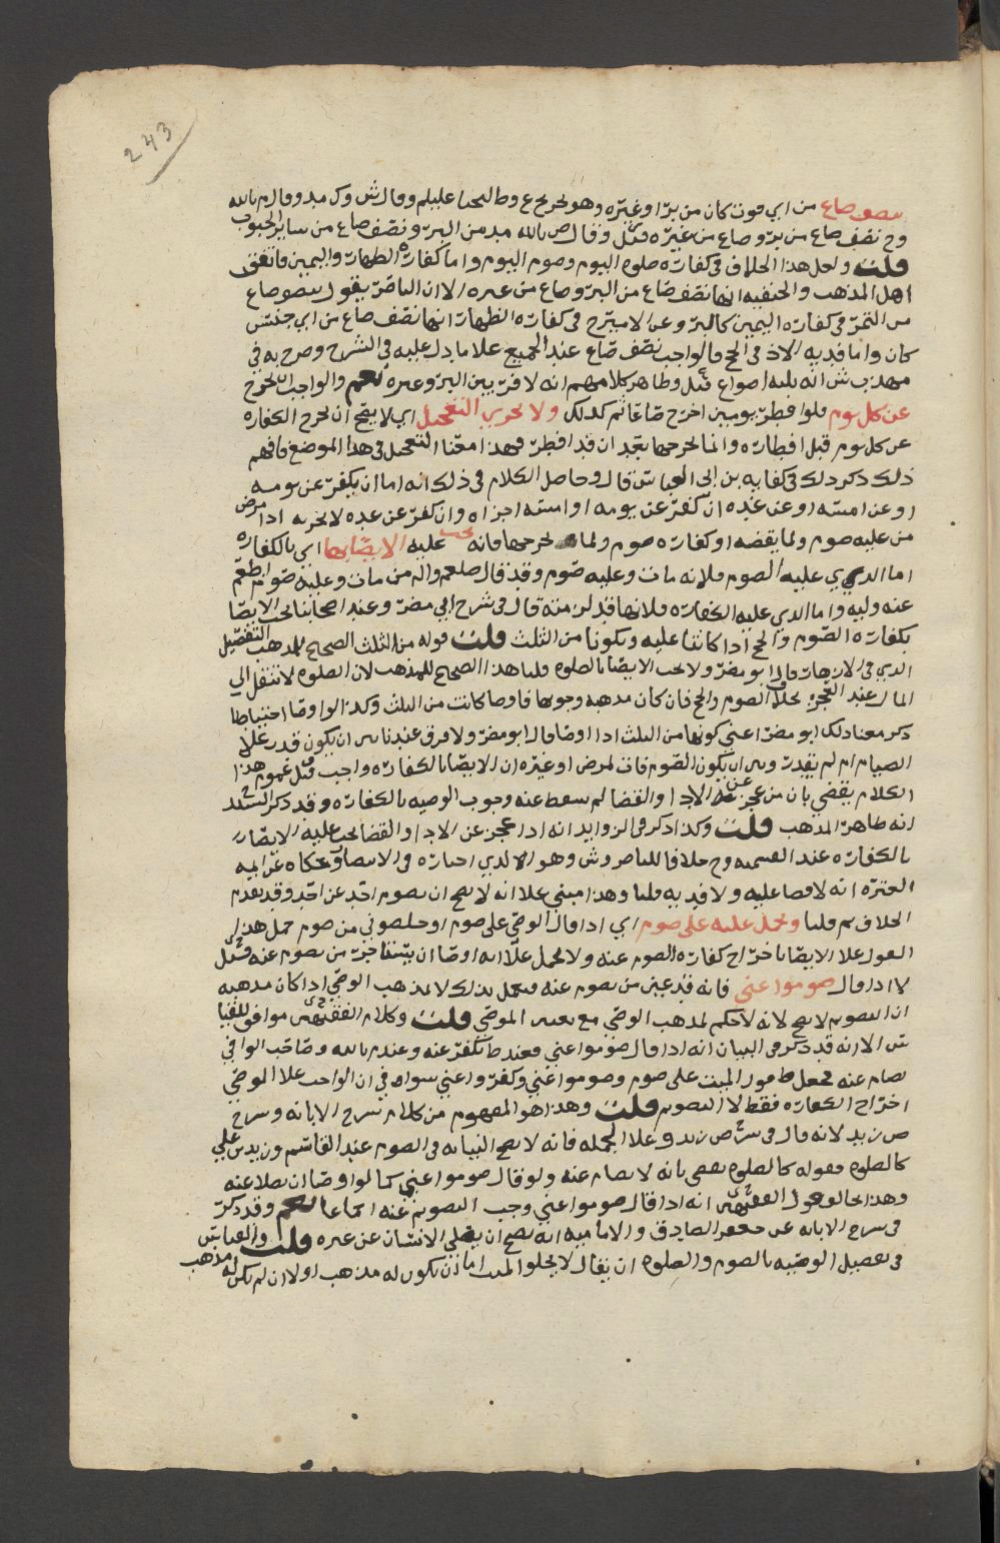 243
نصف صاع من اي قوت كان من برّ او غيره وهو تخريج ع وط ليحيا عليلم وقال ش وك مد وقال م بالله
وح نصف صاع من برّ وصاع من غيره وقال ص بالله مد من البر ونصف صاع من ساير الحبوب
قلت ولعل هذا الخلاف في كفارة صلوه اليوم وصوم اليوم واما كفارة الظهار واليمين فاتفق
اهل المذهب والحنفيه انها نصف صاع من البر وصاع من غيره الا ان الناصر يقول نصف صاع
من التمر في كفارة اليمين كالبر وعن الامير ح في كفارة الظهار انها نصف صاع من اي جنس
كان واما فديه الاذى في الحج فالواجب نصف صاع عند الجميع علا ما يدل عليه في الشرح وصرح به في
مهذب ش انه ثلثه اصواع وظاهر كلامهم انه لا فرق بين البر وغيره نعم والواجب ان يخرج
عن كل يوم فلو افطر يومين اخرج صاعا ثم كذلك ولا يجزي التعجيل اي لا يصح ان يخرج الكفاره
عن كل يوم قبل افطاره وانما يخرجها بعد ان قد افطر فهذا معنا التعجيل في هذا الموضع فافهم
ذلك ذكر ذلك في كفايه بن ابي العباس قال وحاصل الكلام في ذلك انه اما ان يكفر عن يومه
او عن امسه او عن غده ان كفر عن يومه او امسه اجزاه وان كفر عن غده لا يجزيه اذا مرض
من عليه صوم ولما يقضه او كفاره صوم ولما يخرجها فانه يجب عليه الايصا بها اي بالكفاره
اما الذي عليه الصوم فلانه مات وعليه صوم وقد قال صلعم واله من مات وعليه صوم اطعم
عنه وليه واما الذي عليه الكفاره فلانها قد لزمته قال في شرح ابي مضر وعند اصحابنا يجب الايصا
بكفارة الصوم والحج اذا كانتا عليه ويكونا من الثلث قلت قوله من الثلث الصحيح للمذهب التفصيل
الذي في الازهار قال ابو مضر ولا يجب الايصا بالصلوه قلنا هذا الصحيح للمذهب لان الصلوه لا تنتقل الى
المال عند العجز بخلاف الصوم والحج فان كان مذهبه وجوبها فاوصا كانت من الثلث وكذا لو اوصا احتياطا
ذكر معنا ذلك ابو مضر اعني كونها من الثلث اذا اوصا قال ابو مضر ولا فرق عندنا بين ان يكون قدر علا
الصيام ام لم يقدر وبين ان يكون الصوم فات لمرض او غيره ان الايصا بالكفاره واجب عموم هذا
الكلام يقضي بان من عجز عن الادا والقضا لم يسقط عنه وجوب الوصيه بالكفاره وقد ذكر السيد ح
انه ظاهر المذهب قلت وكذا ذكر في الزوايد انه اذا عجز عن الادا والقضا يجب عليه الايصا
بالكفاره عند القسميه وح خلافا للناصر وش وهو الذي اختاره في الانتصار وحكاه عن ايمه
العتره انه لا قضا عليه ولا فديه قلنا وهذا مبني علا انه لا يصح ان يصوم احد عن احد وقد تقدم
الخلاف ثم قلنا ويحمل عليه على صوم اي اذا قال الوصي على صوم او خلصوني من صوم حمل هذا
القول علا الايصا باخراج كفارة الصوم عنه ولا يحمل علا انه اوصا ان يستاجر من يصوم عنه
لا اذا قال صوموا عني فانه قد عين من يصوم عنه فيعمل بذلك لا مذهب الوصي اذا كان مذهبه
ان التصويم لا يصح لانه لا حكم لمذهب الوصي مع تعيين الموصي قلت وكلام الفقيهين موافق للفتيا
الا انه قد ذكر في البيان انه اذا قال صوموا عني فعند ط يكفر عنه وعند م بالله وصاحب الوافي
يصام عنه فجعل ط قول الميت على صوم وصوموا عني وكفروا عني سواء في ان الواجب علا الوصي
اخراج الكفاره فقط لا التصويم قلت وهذا هو المفهوم من كلام شرح الابانه وشرح
ص زيد لانه قال في شرح ص زيد وعلا الجمله فانه لا يصح النيابه في الصوم عند القاسم وزيد بن علي
كالصلوه فقوله كالصلوه يقضي بانه لا يصام عنه ولو قال صوموا عني كما لو اوصا ان يصلا عنه
وهذا خالف قول الفقيهين انه اذا قال صوموا عني وجب التصويم عنه اجماعا نعم وقد ذكر
في شرح الابانه عن جعفر الصادق والاماميه انه يصح ان يصلي الانسان عن غيره قلت والقياس
في تفصيل الوصيه بالصوم والصلوه ان يقال لا يخلوا الميت اما ان يكون له مذهب او لا ان لم يكن له مذهب